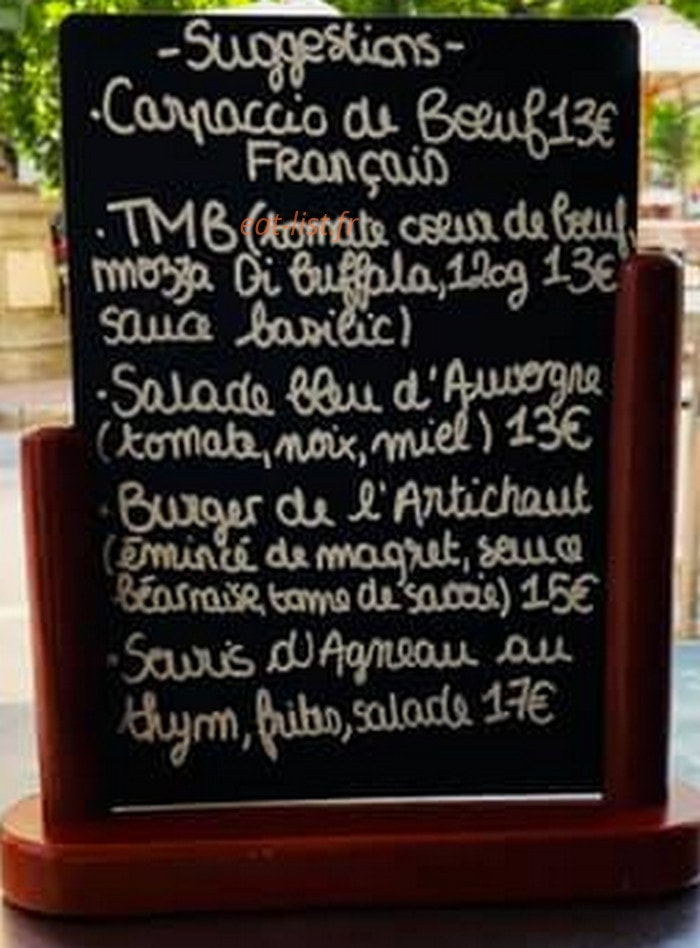 -Suggestions-
·Carpaccio de Bœuf 13€
Français
·TMB (tomate cœur de bœuf,
mozza Di Buffala, 120g 13€
sauce basilic)
·Salade bleu d'Auvergne
(tomate, noix, miel) 13€
·Burger de l'Artichaut
(émincé de magret, sauce
béarnaise, tome de savoie) 15€
·Souris d'Agneau au
thym, frites, salade 17€
eat-list.fr